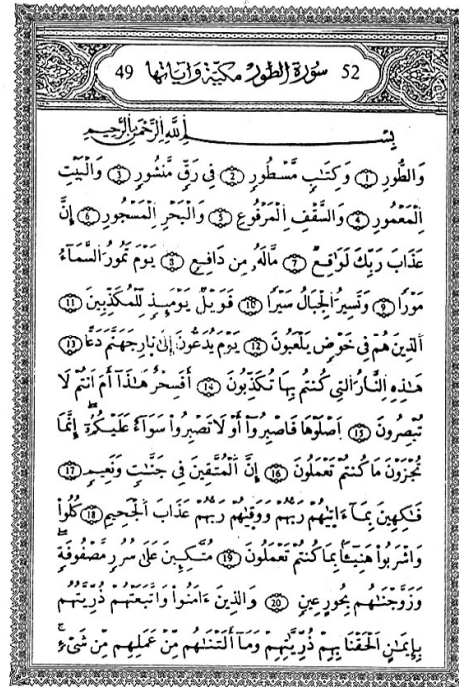 52 سورة الطور مكية وآياتها 49
بِسْمِ اِللَّهِ اِلرَّحْمَٰنِ اِلرَّحِيمِ
وَالطُّورِ 1 وَكِتَٰبٍ مَّسْطُورٍ 2 فِي رَقٍّ مَّنشُورٍ 3 وَالْبَيْتِ
اِلْمَعْمُورِ 4 وَالسَّقْفِ اِلْمَرْفُوعِ 5 وَالْبَحْرِ اِلْمَسْجُورِ 6 إِنَّ
عَذَابَ رَبِّكَ لَوَٰقِعٌ 7 مَّالَهُۥ مِن دَافِعٍ 8 يَوْمَ تَمُورُ السَّمَآءُ
مَوْرًا 9 وَتَسِيرُ الْجِبَالُ سَيْرًا 10 فَوَيْلٌ يَوْمَئِذٍ لِّلْمُكَذِّبِينَ 11
اَلذِينَ هُمْ فِي خَوْضٍ يَلْعَبُونَ 12 يَوْمَ يُدَعُّونَ إِلَىٰ نَارِ جَهَنَّمَ دَعًّا 13
هَٰذِهِ اِلنَّارُ اُلتِي كُنتُم بِهَا تُكَذِّبُونَ 14 أَفَسِحْرٌ هَٰذَآ أَمَ اَنتُمْ لَا
تُبْصِرُونَ 15 اَصْلَوْهَا فَاصْبِرُوٓاْ أَوْ لَا تَصْبِرُواْ سَوَآءٌ عَلَيْكُمُۥٓ إِنَّمَا
تُجْزَوْنَ مَا كُنتُمْ تَعْمَلُونَ 16 إِنَّ اَلْمُتَّقِينَ فِي جَنَّٰتٍ وَنَعِيمٍ 17
فَٰكِهِينَ بِمَآ ءَاتَيٰهُمْ رَبُّهُمْ وَوَقَيٰهُمْ رَبُّهُمْ عَذَابَ اَلْجَحِيمِ 18 كُلُواْ
وَاشْرَبُواْ هَنِيٓـًٔا بِمَا كُنتُمْ تَعْمَلُونَ 19 مُتَّكِـِٔينَ عَلَىٰ سُرُرٍ مَّصْفُوفَةٍ
وَزَوَّجْنَٰهُم بِحُورٍ عِينٍ 20 وَالذِينَ ءَامَنُواْ وَاتَّبَعَتْهُمْ ذُرِّيَّتُهُم
بِإِيمَٰنٍ اَلْحَقْنَا بِهِمْ ذُرِّيَّٰتِهِمْ وَمَآ أَلَتْنَٰهُم مِّنْ عَمَلِهِم مِّن شَيْءٍ